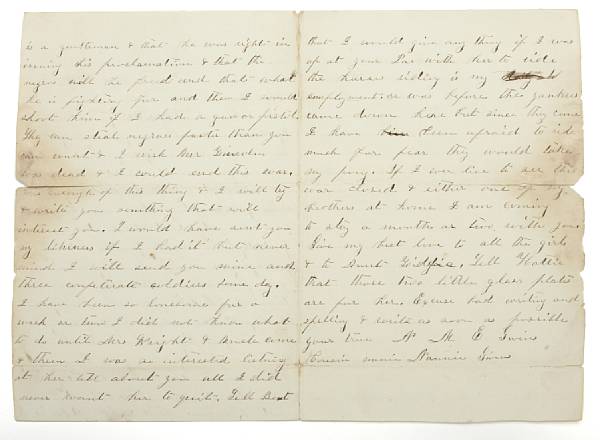 is a gentleman & that he was right in
issuing his proclamation & that the
negros will be freed and that what
he is fighting for and then I would
shoot him if I had a gun or pistol.
They can steal negroes faster than you
can count & I wish Mr Lincoln
was dead & I could end this war.
enough of this thing & I will try
& write you something that will
interest you. I would have sent you
my likeness if I had it but never
mind I will send you mine and
three confederate soldiers some day.
I have been so lonesome for a
week or two I did not know what
to do until Mrs Wright & Uncle came
& then I was so interested listning
at her tell about you all I did
never want her to quit. Tell
that I would give any thing if I was
up at your with her to ride
the horses riding is my
employment. or was before the yankees
came down here but since they came
I have been afraid to ride
much for fear they would take
my pony. If I ever live to see this
war closed & either one of my
brothers at home I am coming
to stay a month or two with you
Give my best love to all the girls
& to Aunt Tell Hattie
that those two little glass plates
are for her. Excuse bad writing and
spelling & write as soon as possible
your true N M E
Cousin Nannie